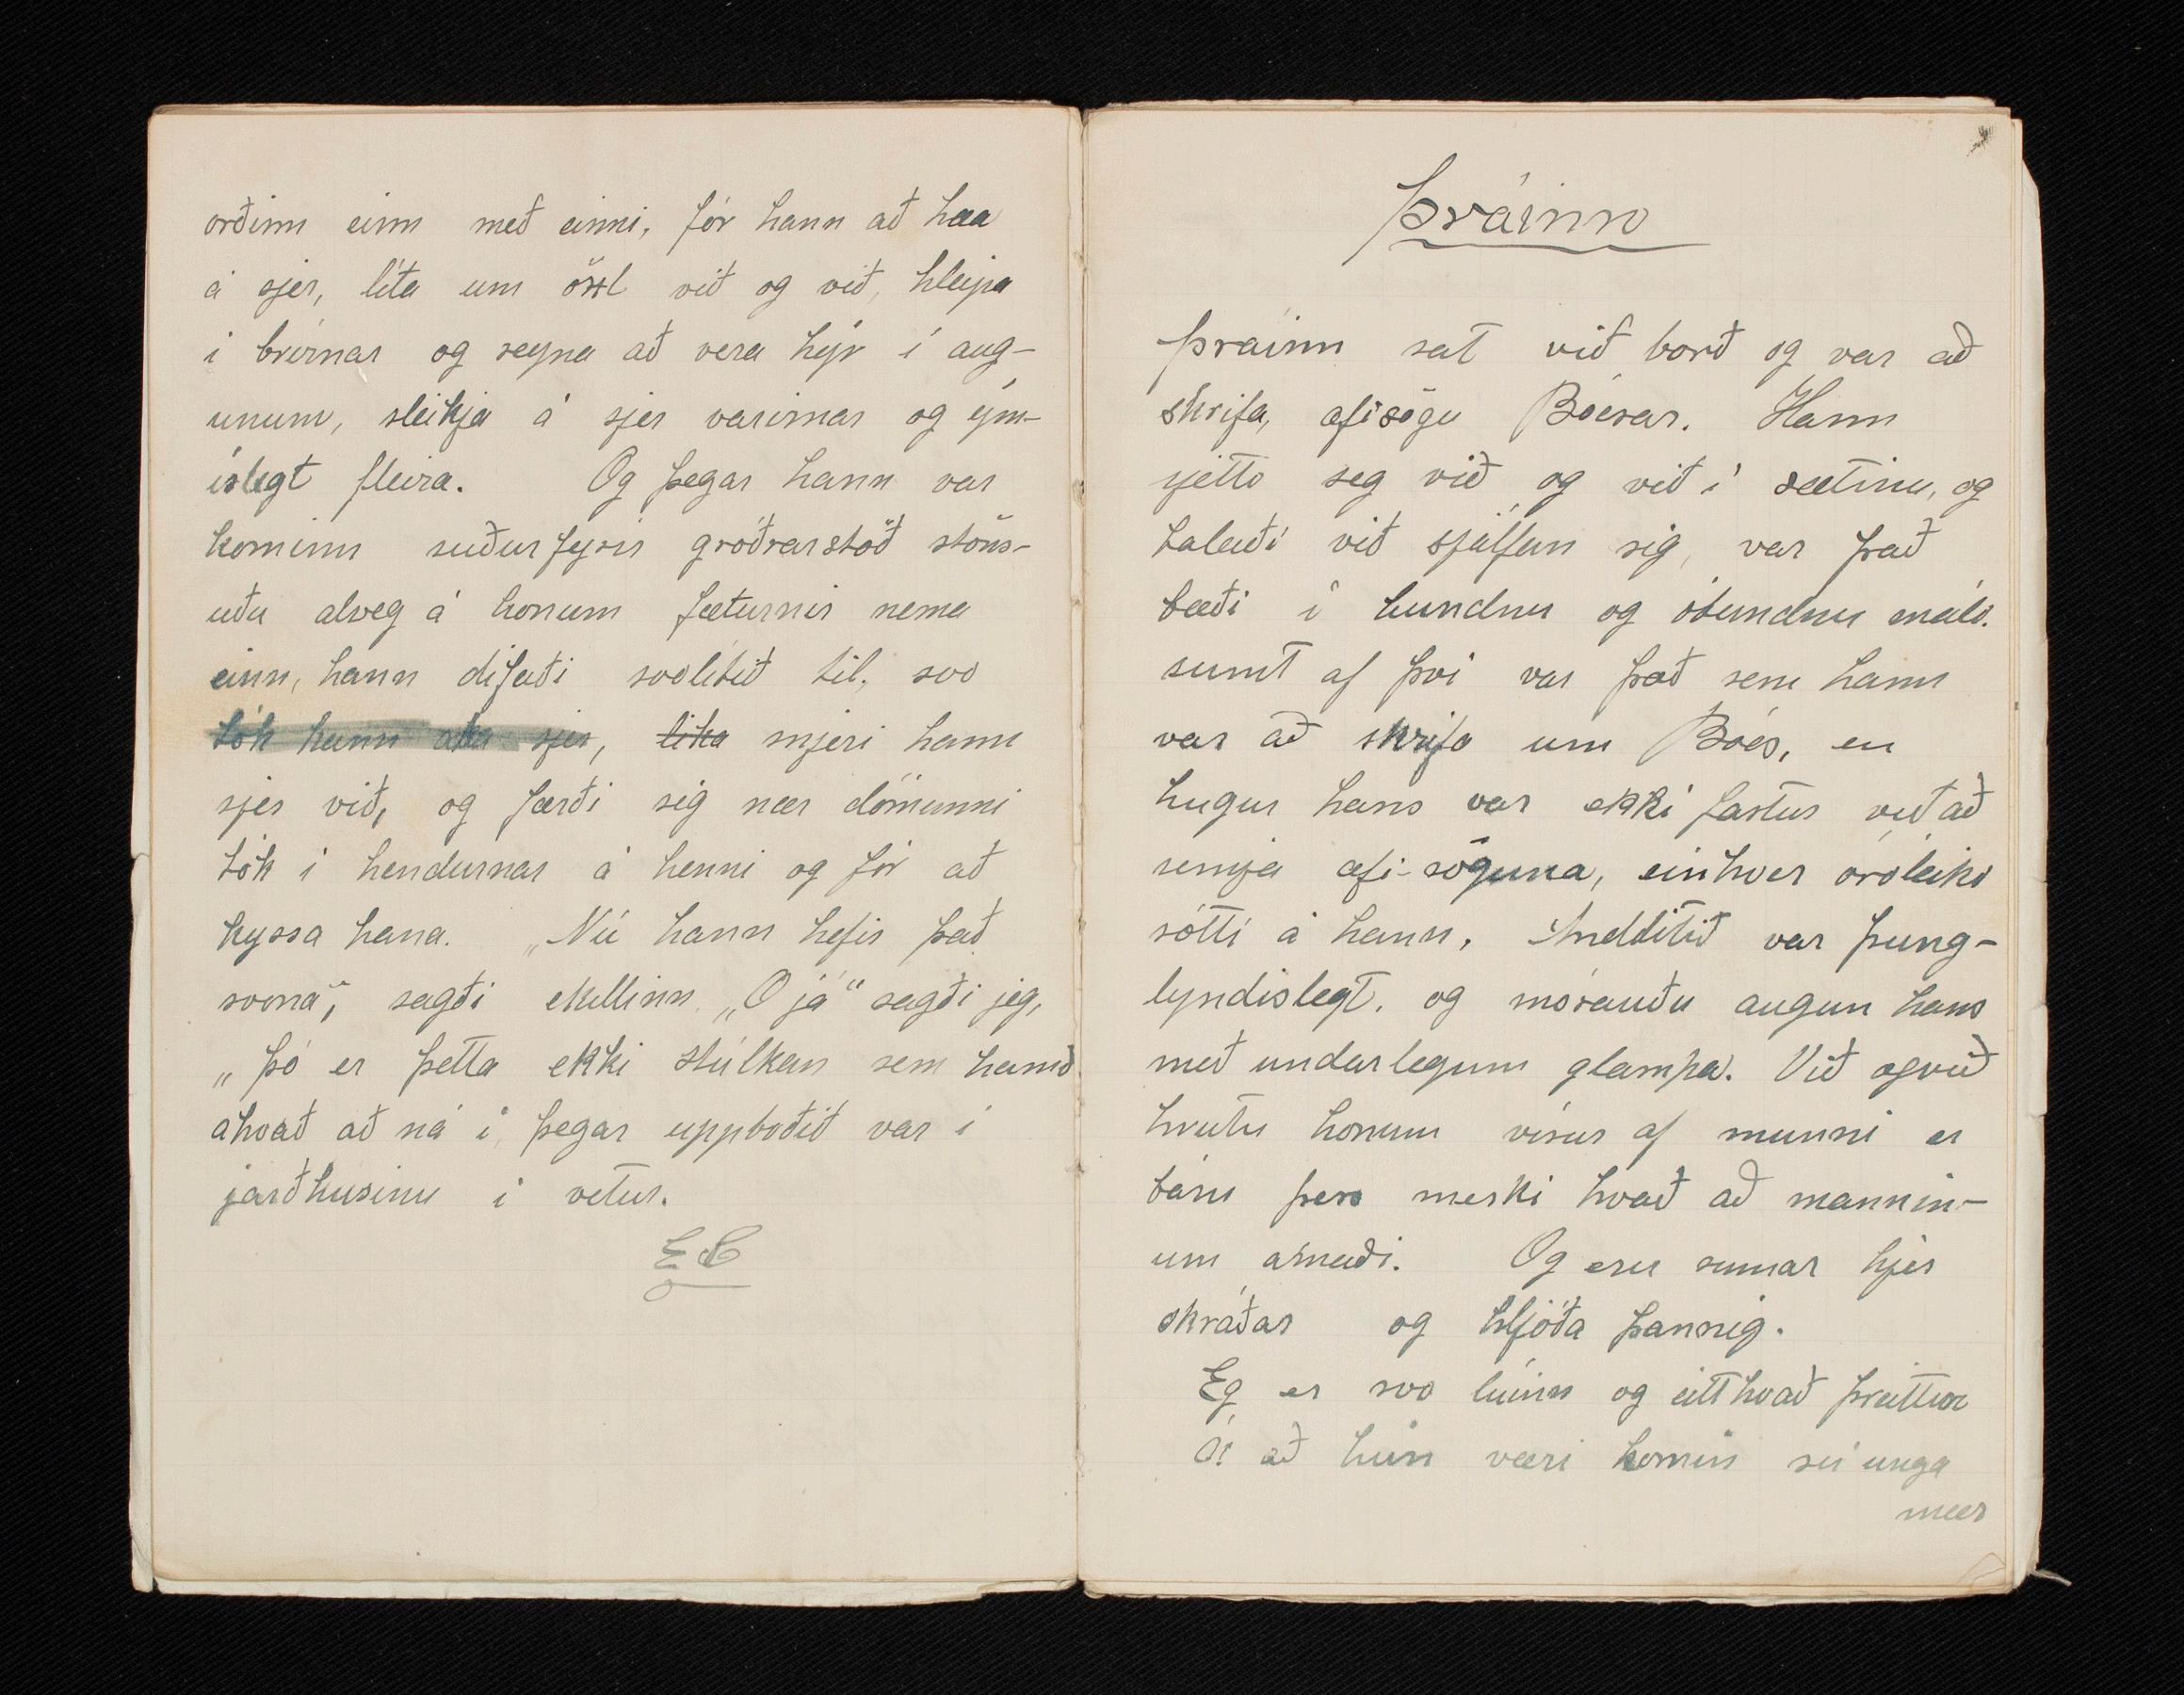 orðinn einn með einni, fór hann að haa
á sjer, líta um öxl við og við, hleipa
í brírnar og reyna að vera hýr í aug-
unum, sleikja á sjer varirnar og ým-
íslegt fleira. Og þegar hann var
kominn suður fyrir gróðrarstöð stöns-
uðu alveg á honum fæturnir nema
einn, hann difaði soolítið til, svo
tók hann aka sjer, líka snjeri hann
sjer við, og færði sig nær dömunni
tók í hendurnar á henni og fór að
kyssa hana. „Nú hann hefir það
svona", sagði ekillinn. „O já" sagði jeg,
„þó er þetta ekki stúlkan sem hann
ahvað að ná í þegar uppboðið var í
jarðhusinu í vetur.
E E
Þráinn
Þráinn sat við borð og var að
skrifa, æfisögu Bóesar. Hann
rjetto seg við og við í sætinu, og
talaði við sjálfan sig, var það
bæði í bundnu og óbundnu máli.
sumt af því var það sem hann
var að skrifa um Bóes, en
hugur hans var ekki fastur við að
semja æfi-söguna, einhver óróleiki
sótti á hann, Andlitið var þung-
lyndislegt. og mórauðu augun hans
með undarlegum glampa. Við ogvið
hrutu honum vísur af munni er
báru þess merki hvað að mannin-
um amaði. Og eru sumar hjer
skráðar og hljóða þannig.
Eg er svo lúinn og eitthvað þreittur
Ó! að hún væri komin sú unga
mær